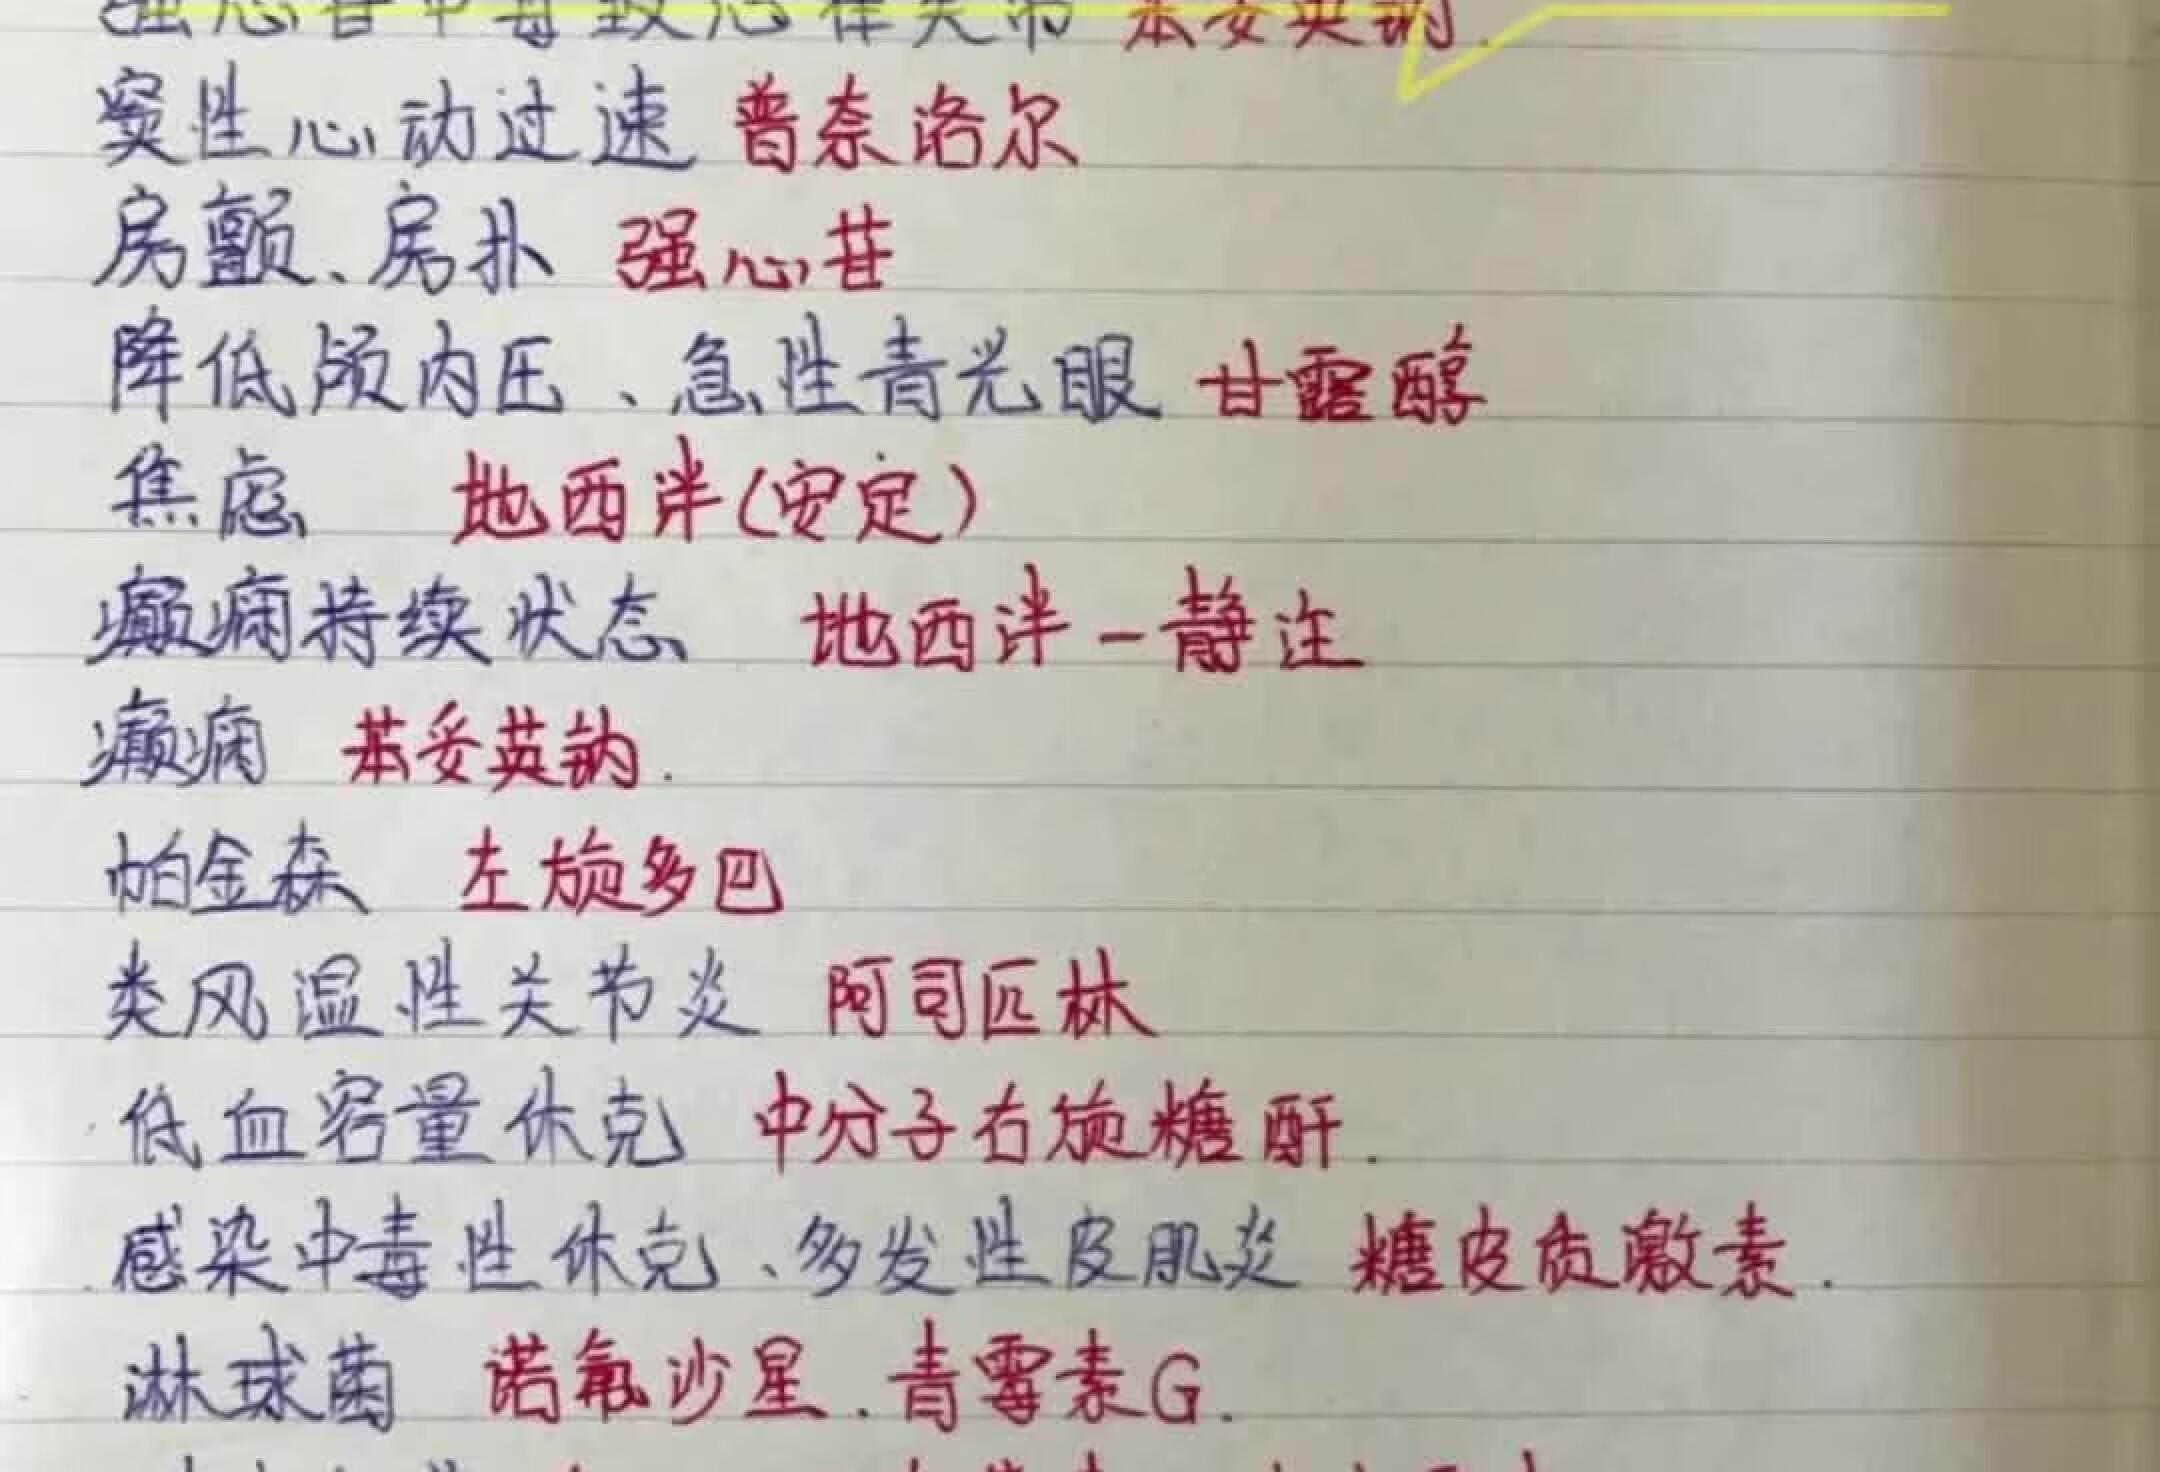 强心苷中毒致心律失常 苯妥英钠.
窦性心动过速 普奈洛尔
房颤、房扑 强心苷
降低颅内压、急性青光眼 甘露醇
焦虑 地西泮(安定)
癫痫持续状态 地西泮-静注
癫痫 苯妥英钠.
帕金森 左旋多巴
类风温性关节炎 阿司匹林
低血容量休克 中分子右旋糖酐.
感染中毒性休克、多发性皮肌炎 糖皮质激素.
淋球菌 诺氟沙星.青霉素G.